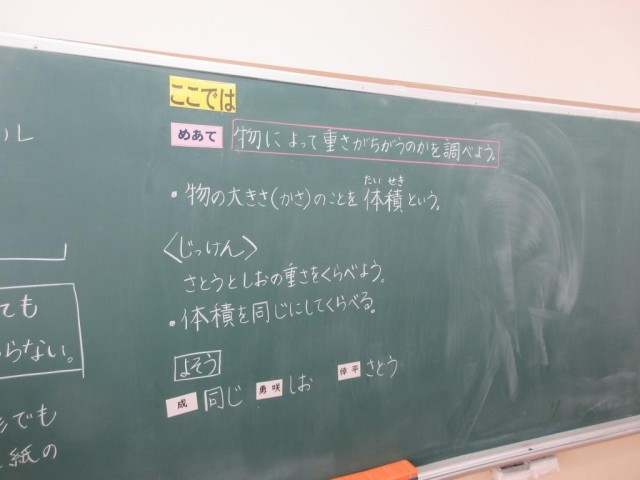 ここでは
めあて 物によって重さがちがうのかを調べよう。
・物の大きさ(かさ)のことを体積という。
たい せき
〈じっけん〉
さとうとしおの重さをくらべよう。
・体積を同じにしてくらべる。
よそう
成 同じ 勇咲 しお 倖平 さとう
ル
ても
らない。
でも
紙の